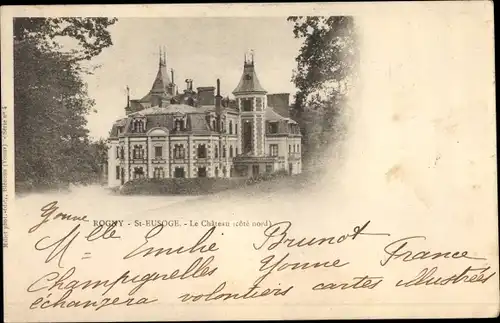 ROGNY - St-EUSOGE. - Le Château (côté nord)
Yonne
Mlle Emilie Brunot France
Champignelles Yonne
échangerait volontiers cartes illustrées